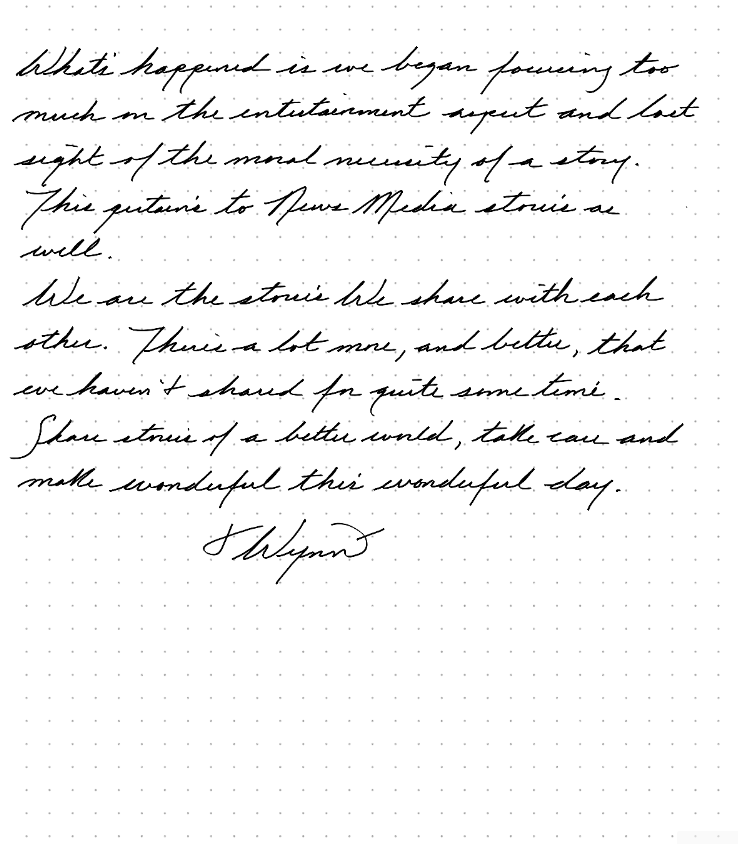 What's happened is we began focusing too
much on the entertainment aspect and lost
sight of the moral necessity of a story.
This pertains to News Media stories as
well.
We are the stories We share with each
other. There's a lot more, and better, that
we haven't shared for quite some time.
Share stories of a better world, take care and
make wonderful this wonderful day.
Wynn